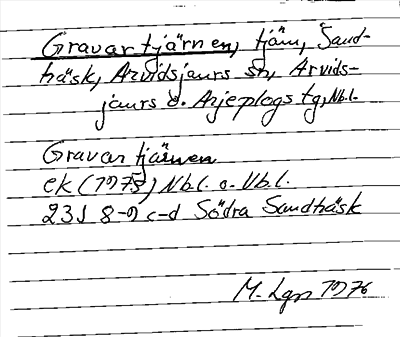 Gravartjärnen, tjärn, Sand-
träsk, Arvidsjaurs sn, Arvids-
jaurs o. Arjeplogs tg, Nbl.
Gravartjärnen
ek (1975) Nbl. o. Vbl.
23J 8-9 c-d Södra Sandträsk
M. Lgn 1976